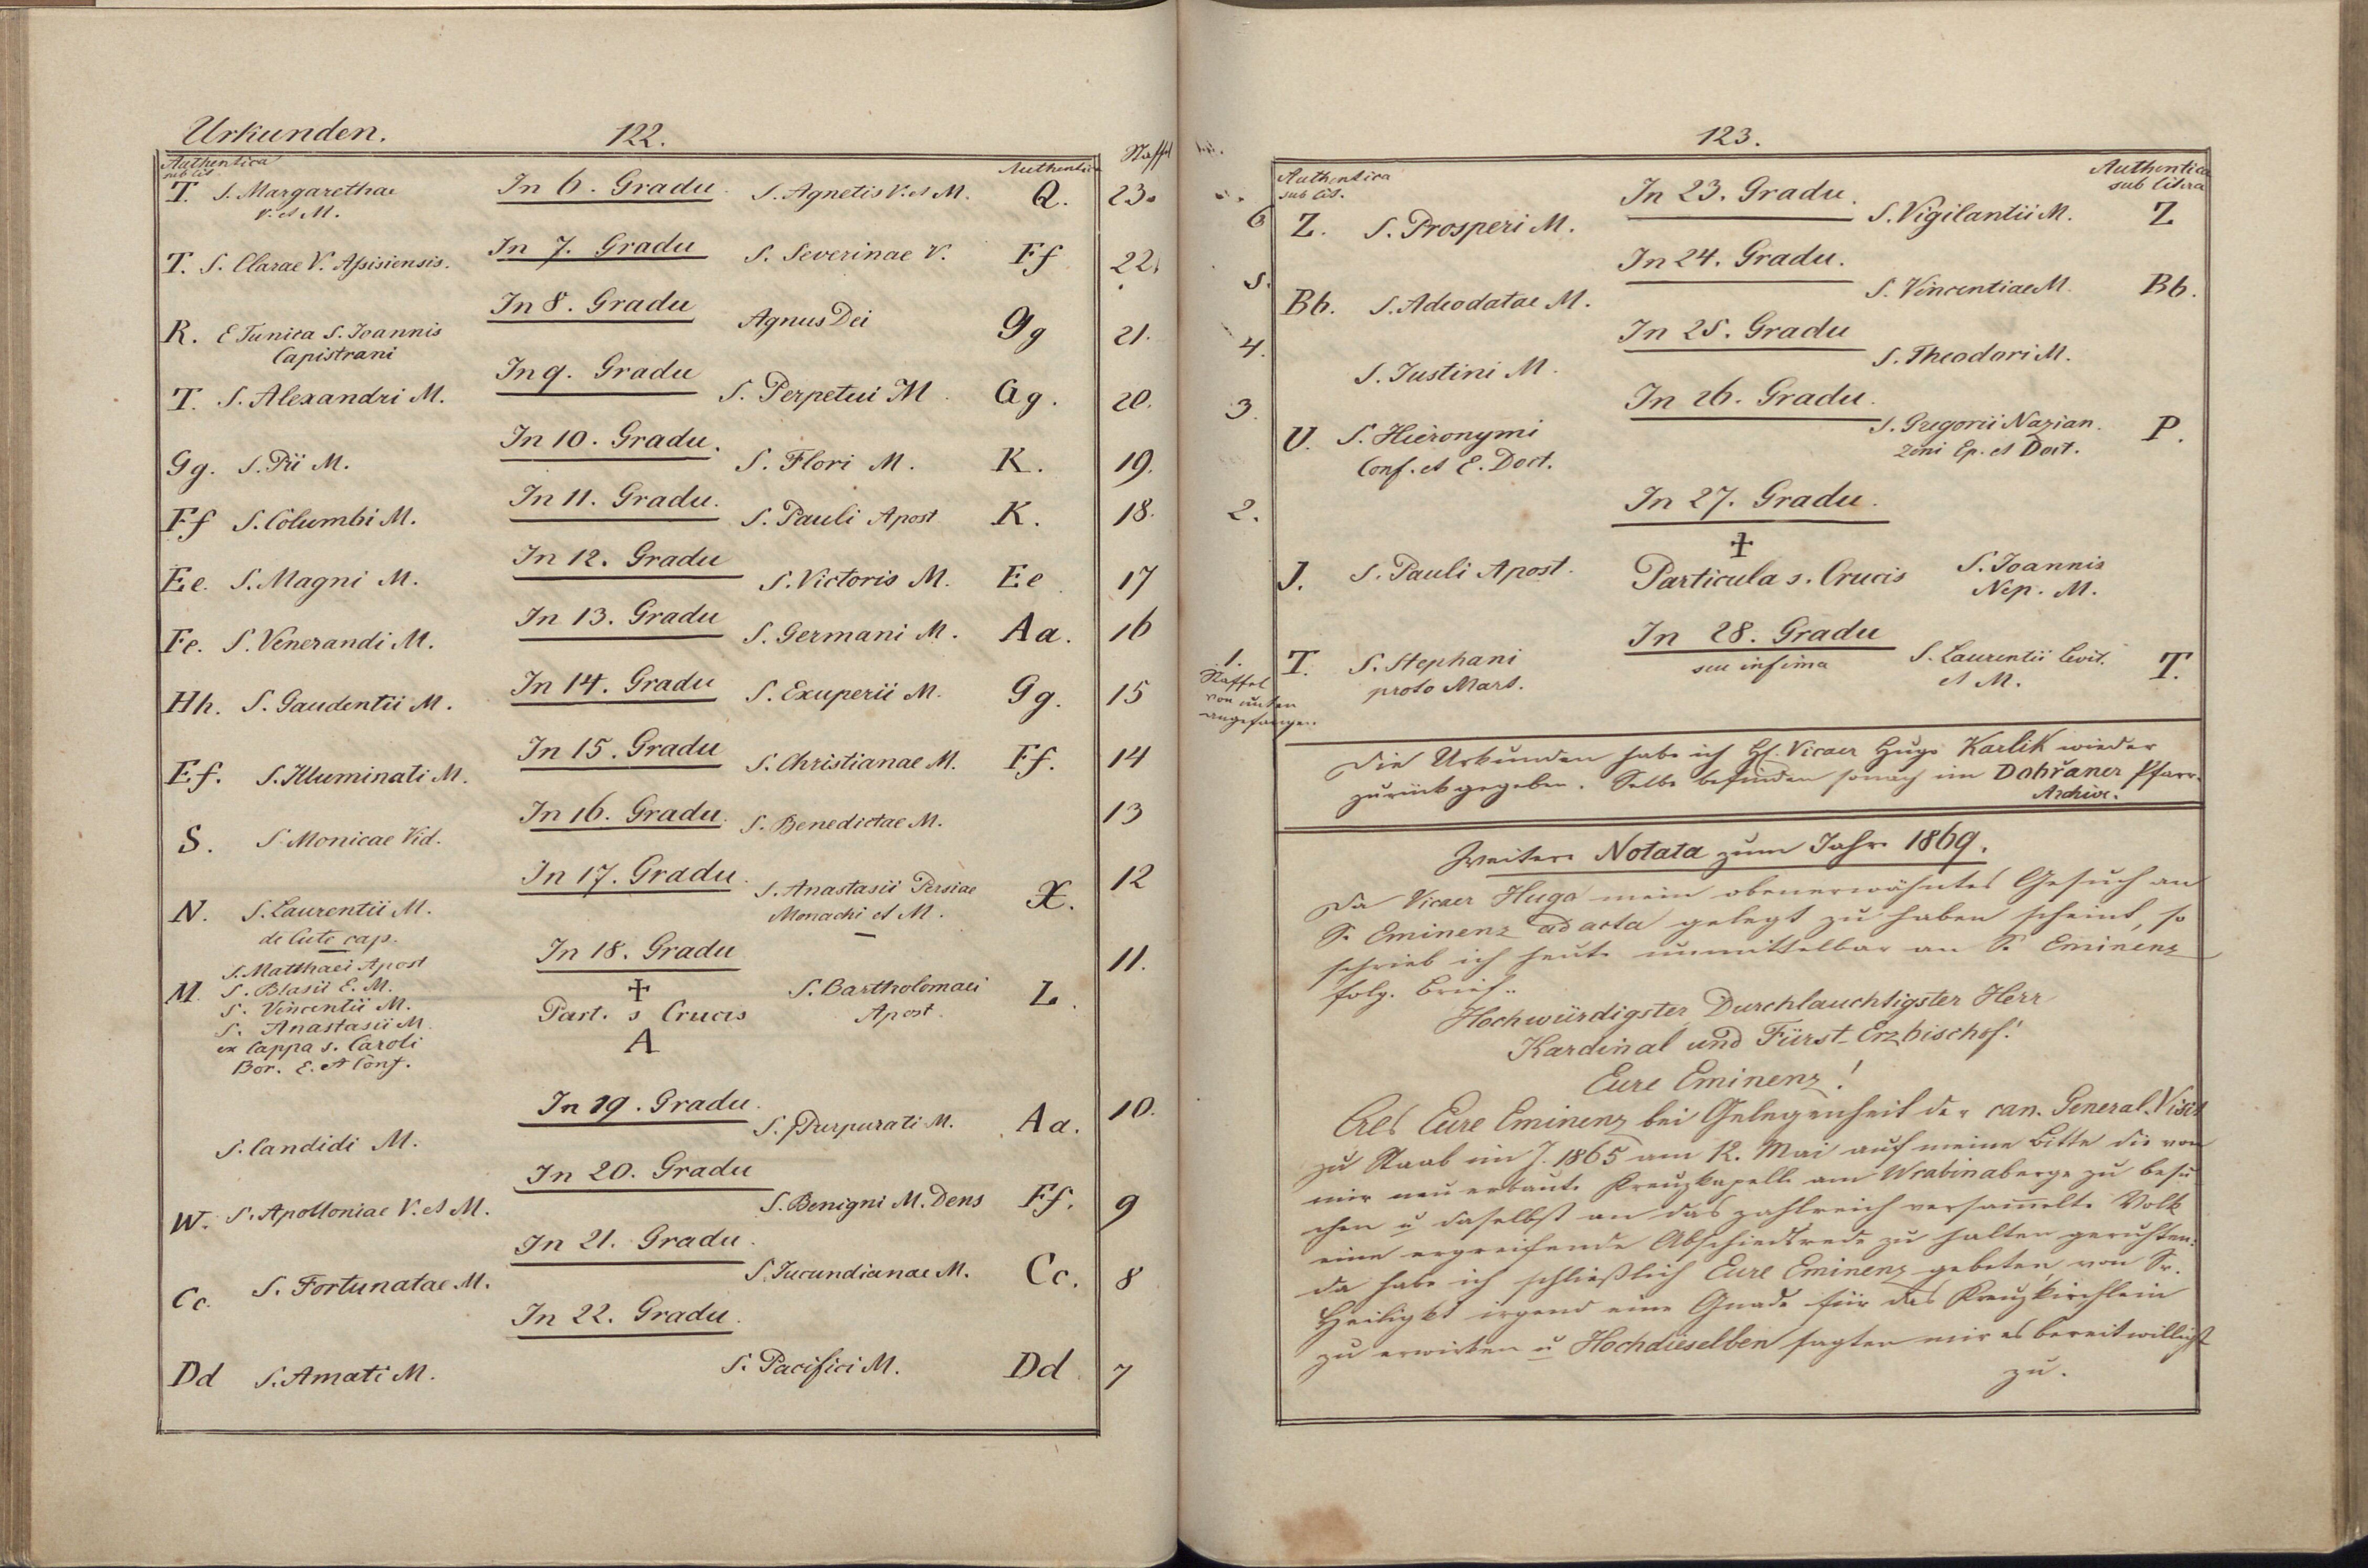 Urkunden. 122.
Authentica
sub lit. Authentica Staffel
T. S. Margarethae In 6. Gradu. S. Agnetis V. et M. Q. 23.
V. et M.
T. S. Clarae V. Assisiensis. In 7. Gradu S. Severinae V. Ff 22.
R. E Tunica S. Joannis In 8. Gradu Agnus Dei Gg 21.
Capistrani
T. S. Alexandri M. In 9. Gradu S. Perpetui M. Gg. 20.
Gg. S. Pii M. In 10. Gradu. S. Flori M. K. 19.
Ff S. Columbi M. In 11. Gradu. S. Pauli Apost K. 18.
Ee. S. Magni M. In 12. Gradu S. Victoris M. Ee 17
Fe. S. Venerandi M. In 13. Gradu S. Germani M. Aa. 16
Hh. S. Gaudentii M. In 14. Gradu S. Exuperii M. Gg. 15
Ff. S. Illuminati M. In 15. Gradu S. Christianae M. Ff. 14
S. S. Monicae Vid. In 16. Gradu. S. Benedictae M. 13
N. S. Laurentii M. In 17. Gradu. S. Anastasii Persiae X. 12
de Cute cap. Monachi et M.
S. Matthaei Apost In 18. Gradu
M. S. Blasii E. M. + S. Bartholomaei L. 11.
S. Vincentii M. Part. s Crucis Apost.
S. Anastasii M. A
ex Cappa s. Caroli
Bor. E. et Conf.
S. Candidi M. In 19. Gradu. S. Purpurati M. Aa. 10.
W. S. Apolloniae V. et M. In 20. Gradu S. Benigni M. Dens Ff. 9
Cc. S. Fortunatae M. In 21. Gradu. S. Jucundianae M. Cc. 8
Dd S. Amati M. In 22. Gradu. S. Pacifici M. Dd 7
123.
Authentica Authentica
sub lit. sub litera
6 Z. S. Prosperi M. In 23. Gradu. S. Vigilantii M. Z
5. Bb. S. Adeodatae M. In 24. Gradu. S. Vincentiae M. Bb.
4. S. Justini M. In 25. Gradu S. Theodori M.
3. U. S. Hieronymi In 26. Gradu. S. Gregorii Nazian- P.
Conf. et E. Doct. zeni Ep. et Doct.
2. In 27. Gradu.
+
J. S. Pauli Apost. Particula s. Crucis S. Joannis
Nep. M.
1. T. S. Stephani In 28. Gradu S. Laurentii Levit. T.
Staffel proto Mart. seu infima et M.
von unten
angefangen.
Die Urkunden habe ich H. Vicaer Hugo Karlik wieder
zurückgegeben. Selbe befinden sonach im Dobřaner Pfarr-
Archive.
Weitere Notata zum Jahre 1869.
Da Vicaer Hugo mein obenerwähntes Gesuch an
S. Eminenz ad acta gelegt zu haben scheint, so
schrieb ich heute unmittelbar an S. Eminenz
folg. Brief:
Hochwürdigster, Durchlauchtigster Herr
Kardinal und Fürst-Erzbischof!
Eure Eminenz!
Als Eure Eminenz bei Gelegenheit der can. General-Visit
zu Staab im J. 1865 am 12. Mai auf meine Bitte die von
mir neu erbaute Kreuzkapelle am Wrabinaberge zu besu
chen u daselbst an das zahlreich versammelte Volk
eine ergreifende Abschiedsrede zu halten geruhten:
da habe ich schließlich Eure Eminenz gebeten, von Sr.
Heiligkt irgend eine Gnade für das Kreuzkirchlein
zu erwirken u Hochdieselben sagten mir es bereitwilligst
zu.